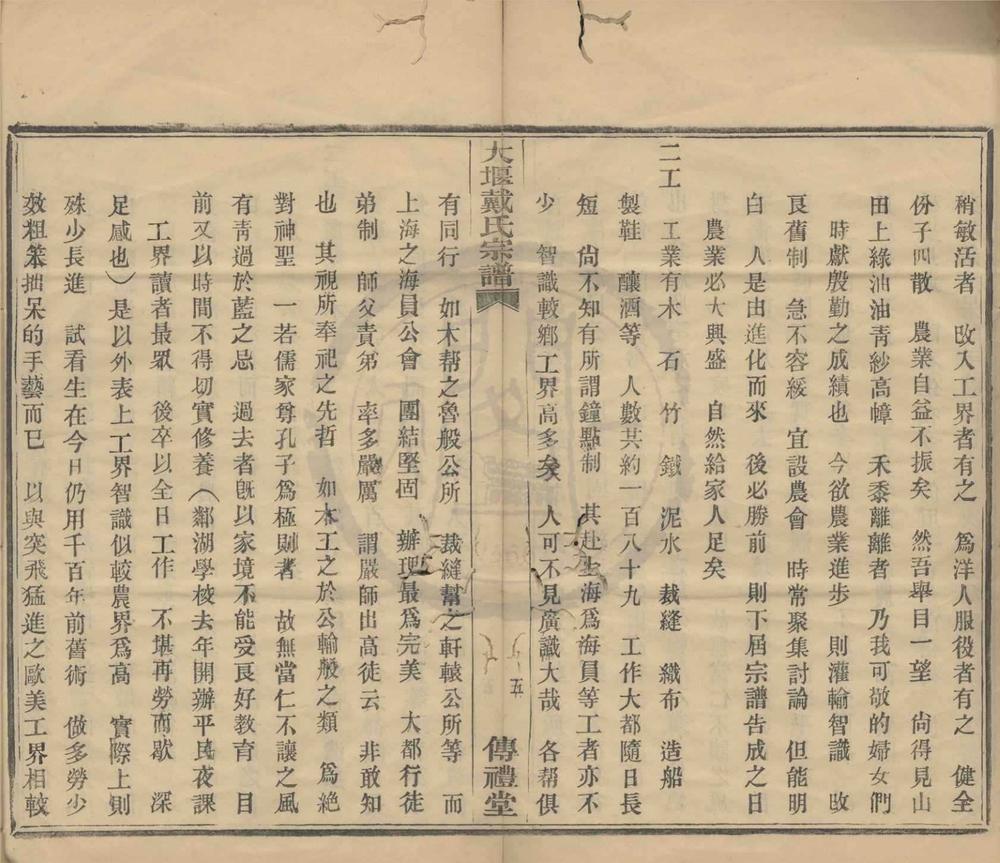 稍敏活者　改入工界者有之　爲洋人服役者有之　健全
份子四散　農業自益不振矣　然吾舉目一望　尙得見山
田上綠油油靑紗高嶂　禾黍離離者　乃我可敬的婦女們
時獻殷勤之成績也　今欲農業進步　則灌輸智識　改
良舊制　急不容緩　宜設農會　時常聚集討論　但能明
白　人是由進化而來　後必勝前　則下屆宗譜吿成之日
農業必大興盛　自然給家人足矣
二工　工業有木　石　竹　鐵　泥水　裁縫　織布　造船
製鞋　釀酒等　人數共約一百八十九　工作大都隨日長
短　尙不知有所謂鐘點制　其赴上海爲海員等工者亦不
少　智識較鄉工界高多矣　人可不見廣識大哉　各帮俱
大堰戴氏宗譜
五
傳禮堂
有同行　如木帮之魯般公所　裁縫幫之軒轅公所等　而
上海之海員公會　團結堅固　辦理最爲完美　大都行徒
弟制　師父責弟　率多嚴厲　謂嚴師出高徒云　非敢知
也　其視所奉祀之先哲　如木工之於公輸般之類　爲絕
對神聖　一若儒家尊孔子爲極則者　故無當仁不讓之風
有靑過於藍之忌　過去者旣以家境不能受良好敎育　目
前又以時間不得切實修養（鄰湖學校去年開辦平民夜課
工界讀者最眾　後卒以全日工作　不堪再勞而歇　深
足感也）是以外表上工界智識似較農界爲高　實際上則
殊少長進　試看生在今日仍用千百年前舊術　做多勞少
效粗笨拙呆的手藝而已　以與突飛猛進之歐美工界相較